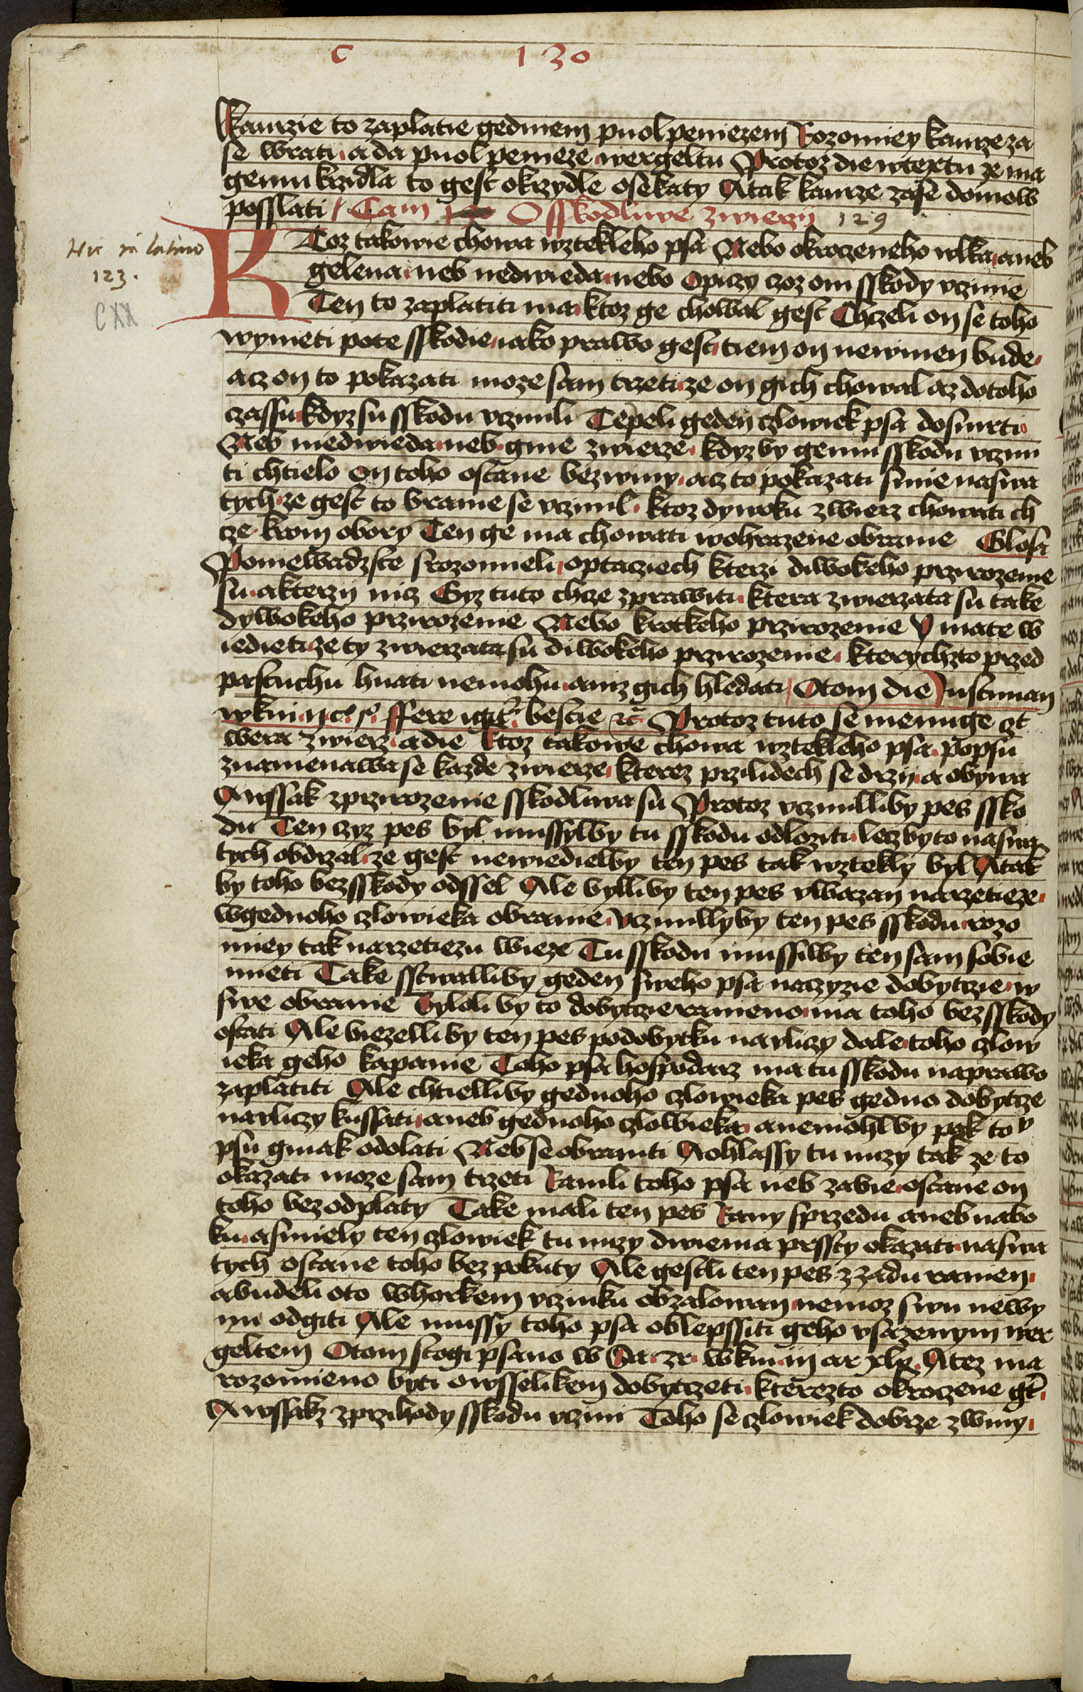 C 130
kaurzie to zaplatie gedniem puolpeniezem Rozomiey kaurze za
se wrati a da puol penieze wergeltu Protoz die wtextu ze ma
gemu krzidla to gest okrzydle osekaty Atak kaurze zase domow
posslati Cam O sskodliwe zwierzy 129
Hic in latino
123.
CXX
KToz takowe chowa wztekleho psa Nebo okroczeneho wlka aneb
gelena neb nedwieda nebo opiczy czoz oni sskody vczinie
Ten to zaplatiti ma ktoz ge chowal gest Chczeli on se toho
wymieti pote sskodie iako prawo gest tiem on newinen bude
acz on to pokazati moze sam trzeti ze on gich chowal az dotoho
czassu kdyz su sskodu vczinili Tepeli geden czlowiek psa dosmrti
Neb niedwieda neb gine zwierze kdyz by gemu sskodu vczini
ti chtielo on toho ostane bez winy acz to pokazati smie naswa
tych ze gest to branie se vczinil ktoz dywoku zwierz chowati ch
cze krom obory Ten ge ma chowati wohrazene obranie Glosa
Poniewadz ste srozomieli optaciech kterzi diwokeho przirozenie
su akterzy nicz Gyz tuto chcze zprawiti ktera zwierzata su take
dywokeho przirozenie Nebo krotkeho przirozenie V mate w
iedieti ze ty zwierzata su diwokeho przirozenie kterychzto przed
pastuchu hnati nemohu aniz gich hledati Otom die Justinian
Protoz tuto se menuge ot
wera zwierz a die Ktoz takowe chowa wztekleho psa popsu
znamenawa se kazde zwierze kterez przilidech se drzy a obywa
Awssak zprzirozenie sskodliwa su Protoz vczinilliby pes ssko
du Ten czyz pes byl mussylby tu sskodu odloziti lecz by to naswa
tych obdrzal ze gest newiedielby ten pes tak wztekly byl Atak
by toho bez sskody odssel Ale bylliby ten pes vwazan narzetieze
wgednoho czlowieka obranie vczinillyby ten pes sskodu rozo
miey tak narzetiezu wieze Tu sskodu mussilby ten sam sobie
mieti Take sstwalliby geden sweho psa naczyzie dobytcze w
swe obranie Bylali by to dobytcze ranieno ma toho bez sskody
ostati Ale biezelliby ten pes podobytku navliczy dale toho czlow
ieka geho kapanie Toho psa hospodarz ma tu sskodu naprawo
zaplatiti Ale chtielliby gednoho czlowieka pes gedno dobytcze
navliczy kussati aneb gednoho czlowieka anemohlby pak to v
psu ginak odolati Neb se obraniti Aohlassy tu niczy tak ze to
okazati moze sam trzeti Ranili toho psa neb zabie ostane on
toho bez odplaty Take mali ten pes Rany sprzedu aneb nabo
ku asmiely ten czlowiek tu niczy dwiema prssty okazati naswa
tych ostane toho bez pokuty Ale gestli ten pes zzadu ranien
abudeli oto whorkem vczinku obzalowan nemoz swu newy
nu odgiti Ale mussy toho psa oblepssiti geho vsazenym wer
geltem Otom stogi psano w Atez ma
rozomieno byti owsselikem dobytczeti kterezto okroczene gt
Awssakz zprzihody sskodu vczini Toho se czlowiek dobrze zwiny